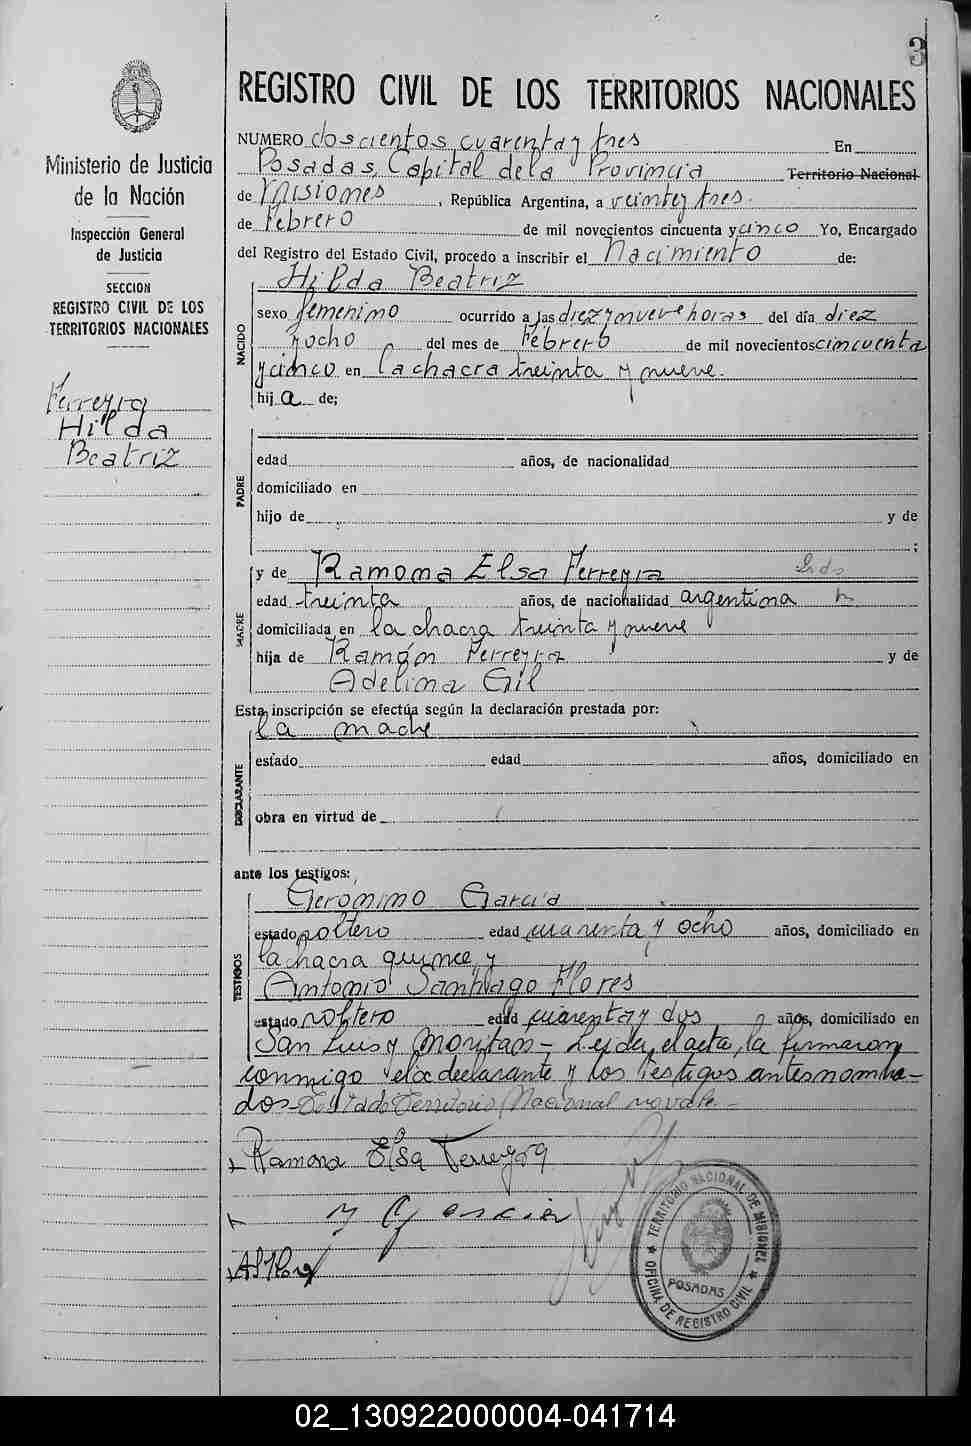 3
REGISTRO CIVIL DE LOS TERRITORIOS NACIONALES
Ministerio de Justicia
de la Nación
Inspección General
de Justicia
SECCION
REGISTRO CIVIL DE LOS
TERRITORIOS NACIONALES
Ferreyra
Hilda
Beatriz
NUMERO doscientos cuarenta y tres En
Posadas, Capital de la Provincia Territorio Nacional
de Misiones, República Argentina, a veinte y tres
de Febrero de mil novecientos cincuenta y cinco Yo, Encargado
del Registro del Estado Civil, procedo a inscribir el Nacimiento de:
NACIDO
Hilda Beatriz
sexo femenino ocurrido a las diez y nueve horas del día diez
y ocho del mes de Febrero de mil novecientos cincuenta
y cinco en la chacra treinta y nueve.
hija de;
PADRE
edad años, de nacionalidad
domiciliado en
hijo de y de
;
MADRE
y de Ramona Elsa Ferreyra
edad treinta años, de nacionalidad argentina
domiciliada en la chacra treinta y nueve
hija de Ramón Ferreyra y de
Adelina Gil
Esta inscripción se efectúa según la declaración prestada por:
DECLARANTE
la madre
estado edad años, domiciliado en
obra en virtud de
ante los testigos:
TESTIGOS
Gerónimo García
estado soltero edad cuarenta y ocho años, domiciliado en
la chacra quince, y
Antonio Santiago Flores
estado soltero edad cuarenta y dos años, domiciliado en
San Luis y Moritan - Leida el acta, la firmaron
conmigo la declarante y los testigos antes nombra-
dos - Testado Territorio Nacional no vale -
Ramona Elsa Ferreyra
y Garcia
ASFlores
TERRITORIO NACIONAL DE MISIONES
POSADAS
OFICINA DE REGISTRO CIVIL
02_130922000004-041714